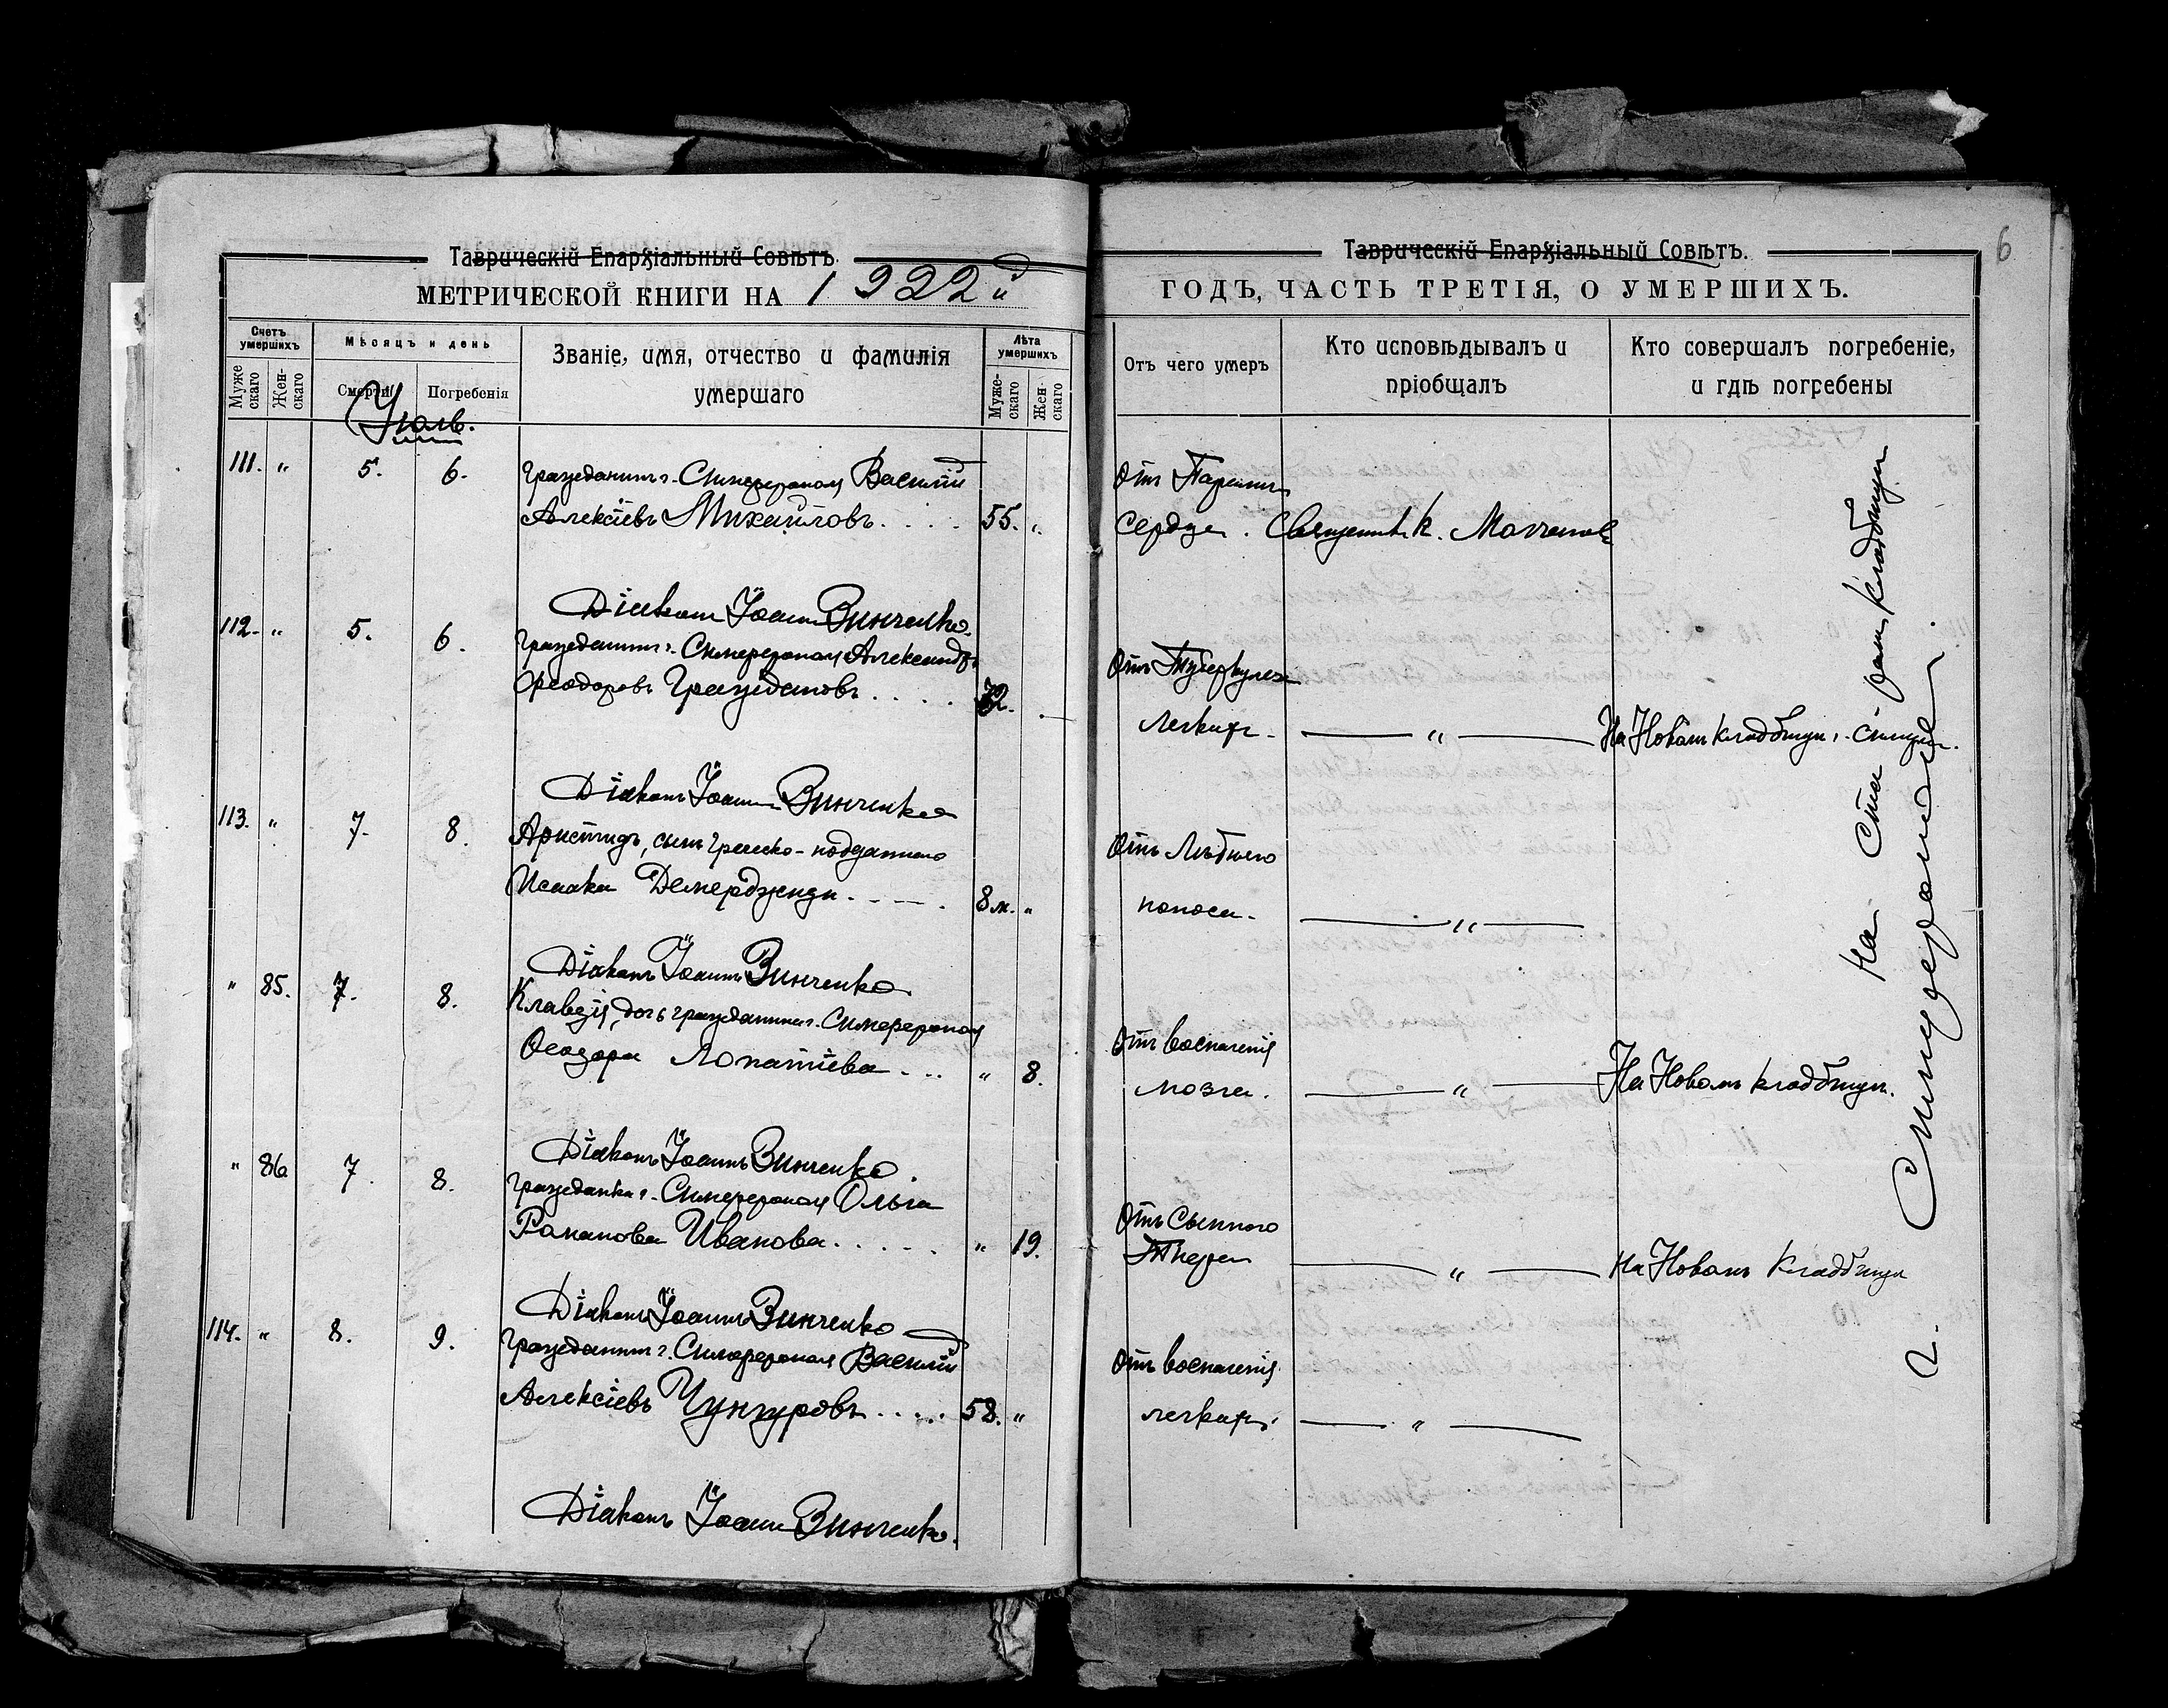 Таврическій Епархіальный Совѣтъ.
МЕТРИЧЕСКОЙ КНИГИ НА 1922 й
Счетъ умершихъ
Мѣсяцъ и день
Званіе, имя, отчество и фамилія умершаго
Лѣта умершихъ
Мужескаго
Женскаго
Смерти
Погребенія
Мужескаго
Женскаго
Іюль.
111. " 5. 6. Гражданинъ г. Симферополя Василій
Алексіевъ Михайловъ. . . . . 55. "
Діаконъ Іоаннъ Зинченко.
112. " 5. 6. Гражданинъ г. Симферополя Александръ
Ѳеодоровъ Граждановъ. . . . . 72.
Діаконъ Іоаннъ Зинченко
113. " 7. 8. Аристидъ, сынъ греческо-подданнаго
Исаака Демерджиди. . . . . 8 м. "
Діаконъ Іоаннъ Зинченко
" 85. 7. 8. Клавдія, дочь гражданина г. Симферополя
Ѳеодора Лопатіева. . . . " 8.
Діаконъ Іоаннъ Зинченко.
" 86 7. 8. Гражданка г. Симферополя Ольга
Романова Иванова. . . . . . " 19.
Діаконъ Іоаннъ Зинченко
114. " 8. 9. Гражданинъ г. Симферополя Василій
Алексіевъ Чунгуровъ. . . . . 58. "
Діаконъ Іоаннъ Зинченко.
Таврическій Епархіальный Совѣтъ.
6
ГОДЪ, ЧАСТЬ ТРЕТІЯ, О УМЕРШИХЪ.
Отъ чего умеръ
Кто исповѣдывалъ и пріобщалъ
Кто совершалъ погребеніе, и гдѣ погребены
Отъ
Сердца. Священник.
Отъ Туберкулеза
легкихъ. — " — На Новомъ кладбищѣ г.
Отъ Лѣтняго
поноса. — " —
Отъ воспаленія
мозга. — " — На Новомъ кладбищѣ.
Отъ Сыпного
Тифа — " — на Новомъ кладбищѣ
Отъ воспаленія
легкихъ. — " —
На кладбищѣ
г. Симферополя.